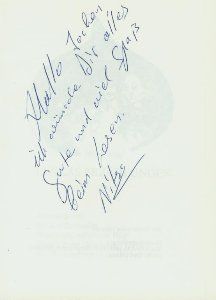 Hallo Jochen
ich wünsche Dir alles
Gute und viel Spaß
beim Lesen.